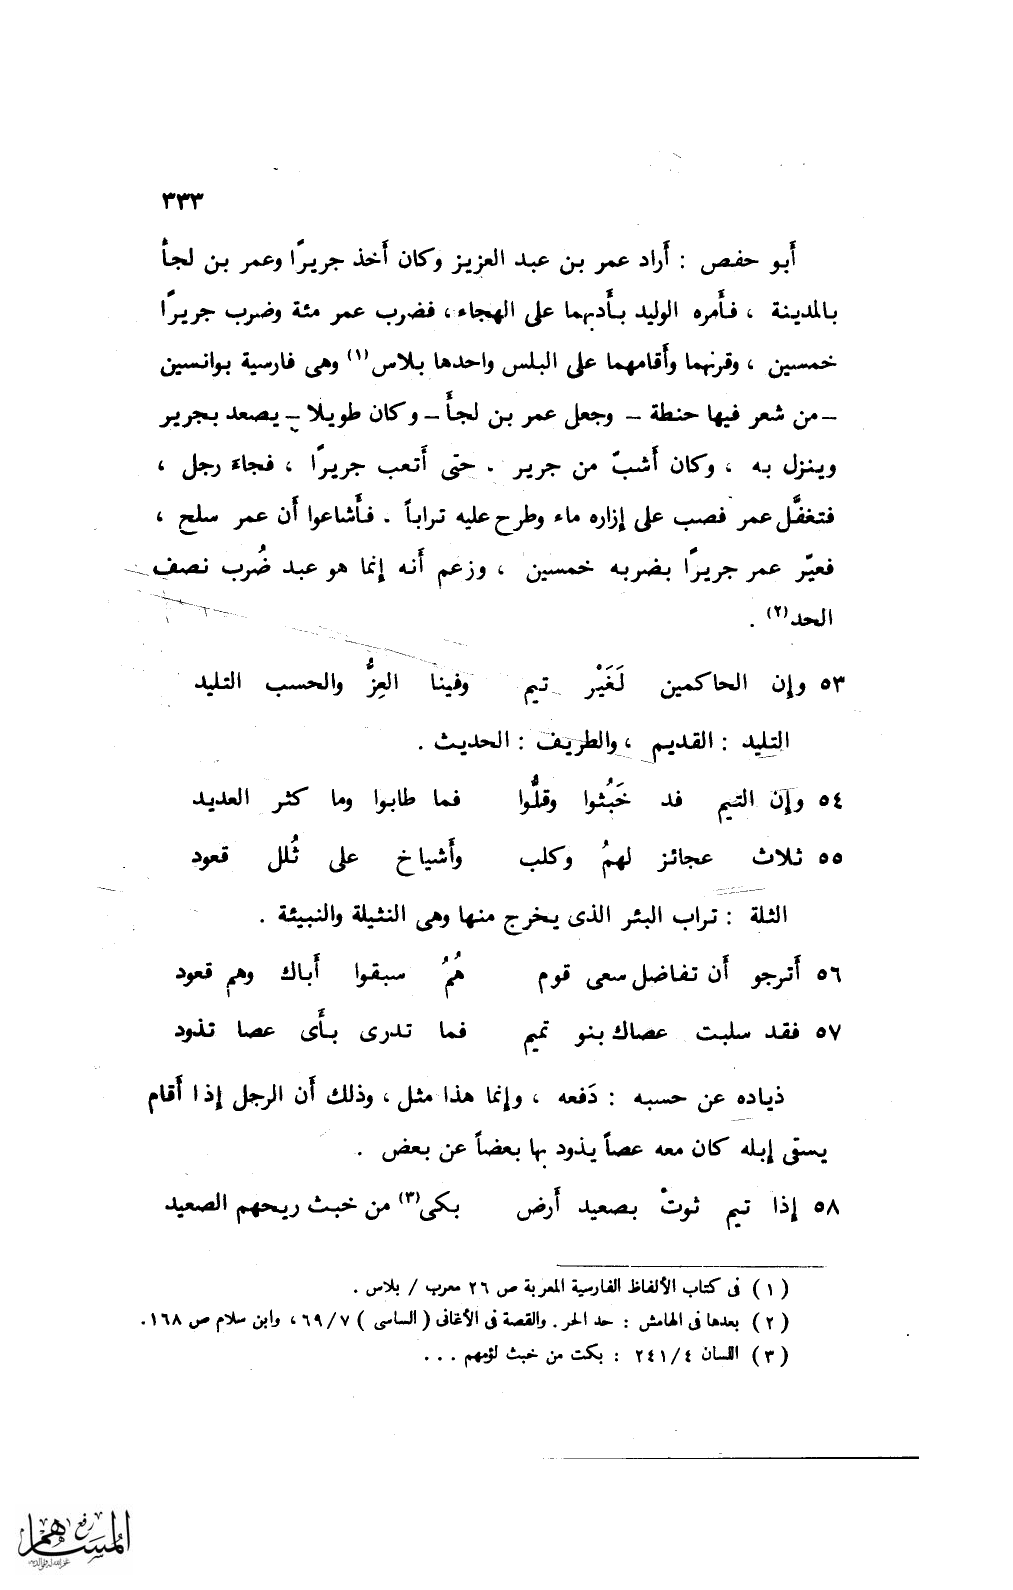 ٣٣٣
أَبو حفص : أَراد عمر بن عبد العزيز وكان أَخذ جريرًا وعمر بن لجأ
بالمدينة ، فأَمره الوليد بأَدبهما على الهجاء ، فضرب عمر مئة وضرب جريرًا
خمسين ، وقرنهما وأَقامهما على البلس واحدها بلاس (١) وهى فارسية بوانسين
ـ من شعر فيها حنطة ـ وجعل عمر بن لجأَ ـ وكان طويلا ـ يصعد بجرير
وينزل به ، وكان أَشبّ من جرير . حتى أَتعب جريرًا ، فجاءَ رجل ،
فتغفَّل عمر فصب على إزاره ماء وطرح عليه تراباً . فأَشاعوا أَن عمر سلح ،
فعيّر عمر جريرًا بضربه خمسين ، وزعم أَنه إنما هو عبد ضُرب نصف
الحد (٢) .
٥٣ وإن الحاكمين لَغَيْر تيم وفينا العِزُّ والحسب التليد
التليد : القديم ، والطريف : الحديث .
٥٤ وإن التيم قد خَبُثوا وقلُّوا فما طابوا وما كثر العديد
٥٥ ثلاث عجائز لهمُ وكلب وأَشياخ على ثُلل قعود
الثلة : تراب البئر الذى يخرج منها وهى النثيلة والنبيثة .
٥٦ أَترجو أَن تفاضل سعى قوم هُمُ سبقوا أَباك وهم قعود
٥٧ فقد سلبت عصاك بنو تميم فما تدرى بأَى عصا تذود
ذياده عن حسبه : دَفعه ، وإنما هذا مثل ، وذلك أَن الرجل إذا أَقام
يستى إبله كان معه عصاً يذود بها بعضاً عن بعض .
٥٨ إذا تيم ثوتْ بصعيد أَرض بكى (٣) من خبث ريحهم الصعيد
( ١ ) فى كتاب الألفاظ الفارسية المعربة ص ٢٦ معرب / بلاس .
( ٢ ) بعدها فى الهامش : حد الحر . والقصة فى الأغانى ( الساسى ) ٦٩/٧ ، وابن سلام ص ١٦٨ .
( ٣ ) اللسان ٢٤١/٤ : بكت من خبث لؤمهم . . .